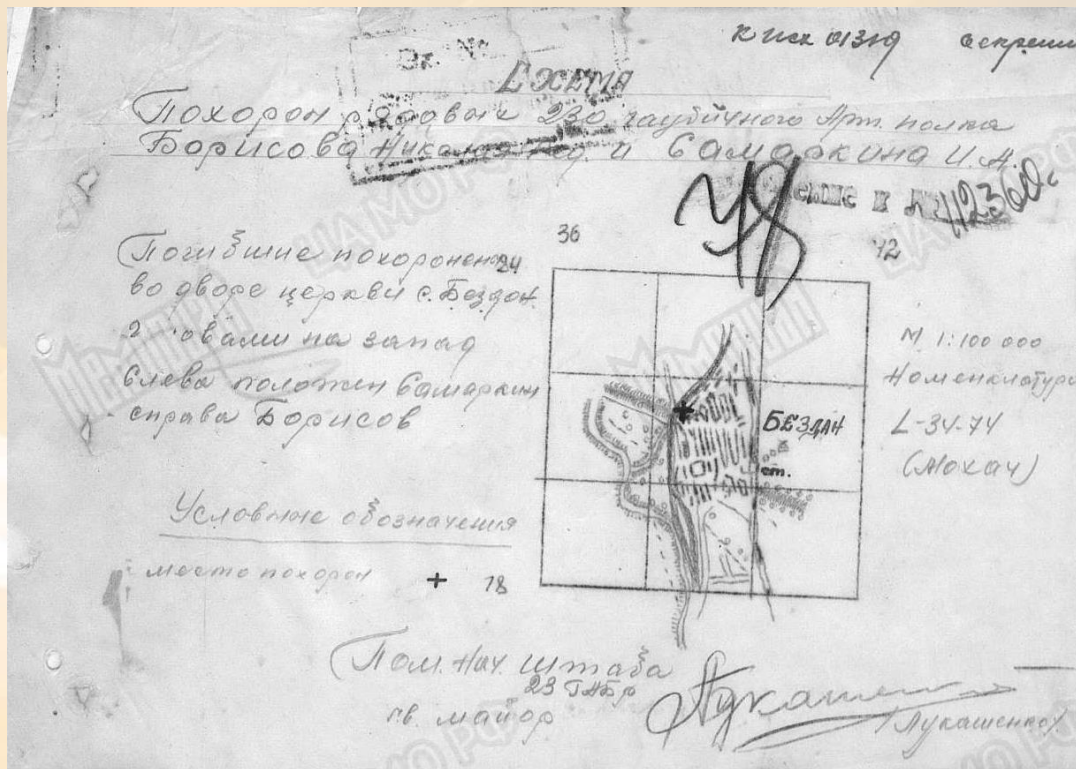 к исх 01319
Схема
Похорон рядовые 230 гаубичного Арт. полка
Борисова и Самаркина И.А.
ение к
112360с
36
42
Погибшие похоронены
24
во дворе церкви с. Бездан
головами на запад
слева положен Самаркин
справа Борисов
М 1:100 000
Номенклатура
L-34-74
(Мохач)
БЕЗДАН
ст.
Условные обозначения
место похорон + 18
Пом. Нач. штаба
23 ГАБр
гв. майор
/Лукашенко/
МЕМОРИАЛ
ЦА МО РФ